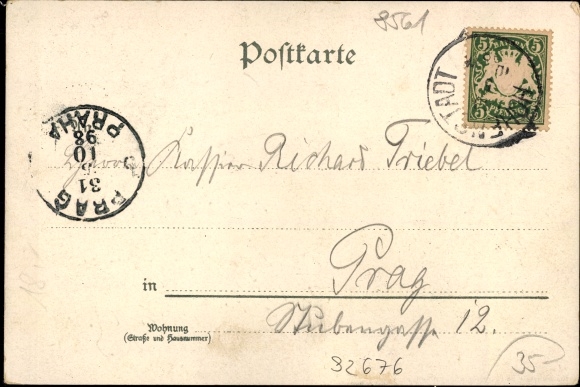 8561
Postkarte
5 5
5
STADT
PRAG PRAHA
31
10
98
Kassier Richard Triebel
in Prag
Wohnung
(Straße und Hausnummer)
Stubengasse 12.
92676
35-
18.-